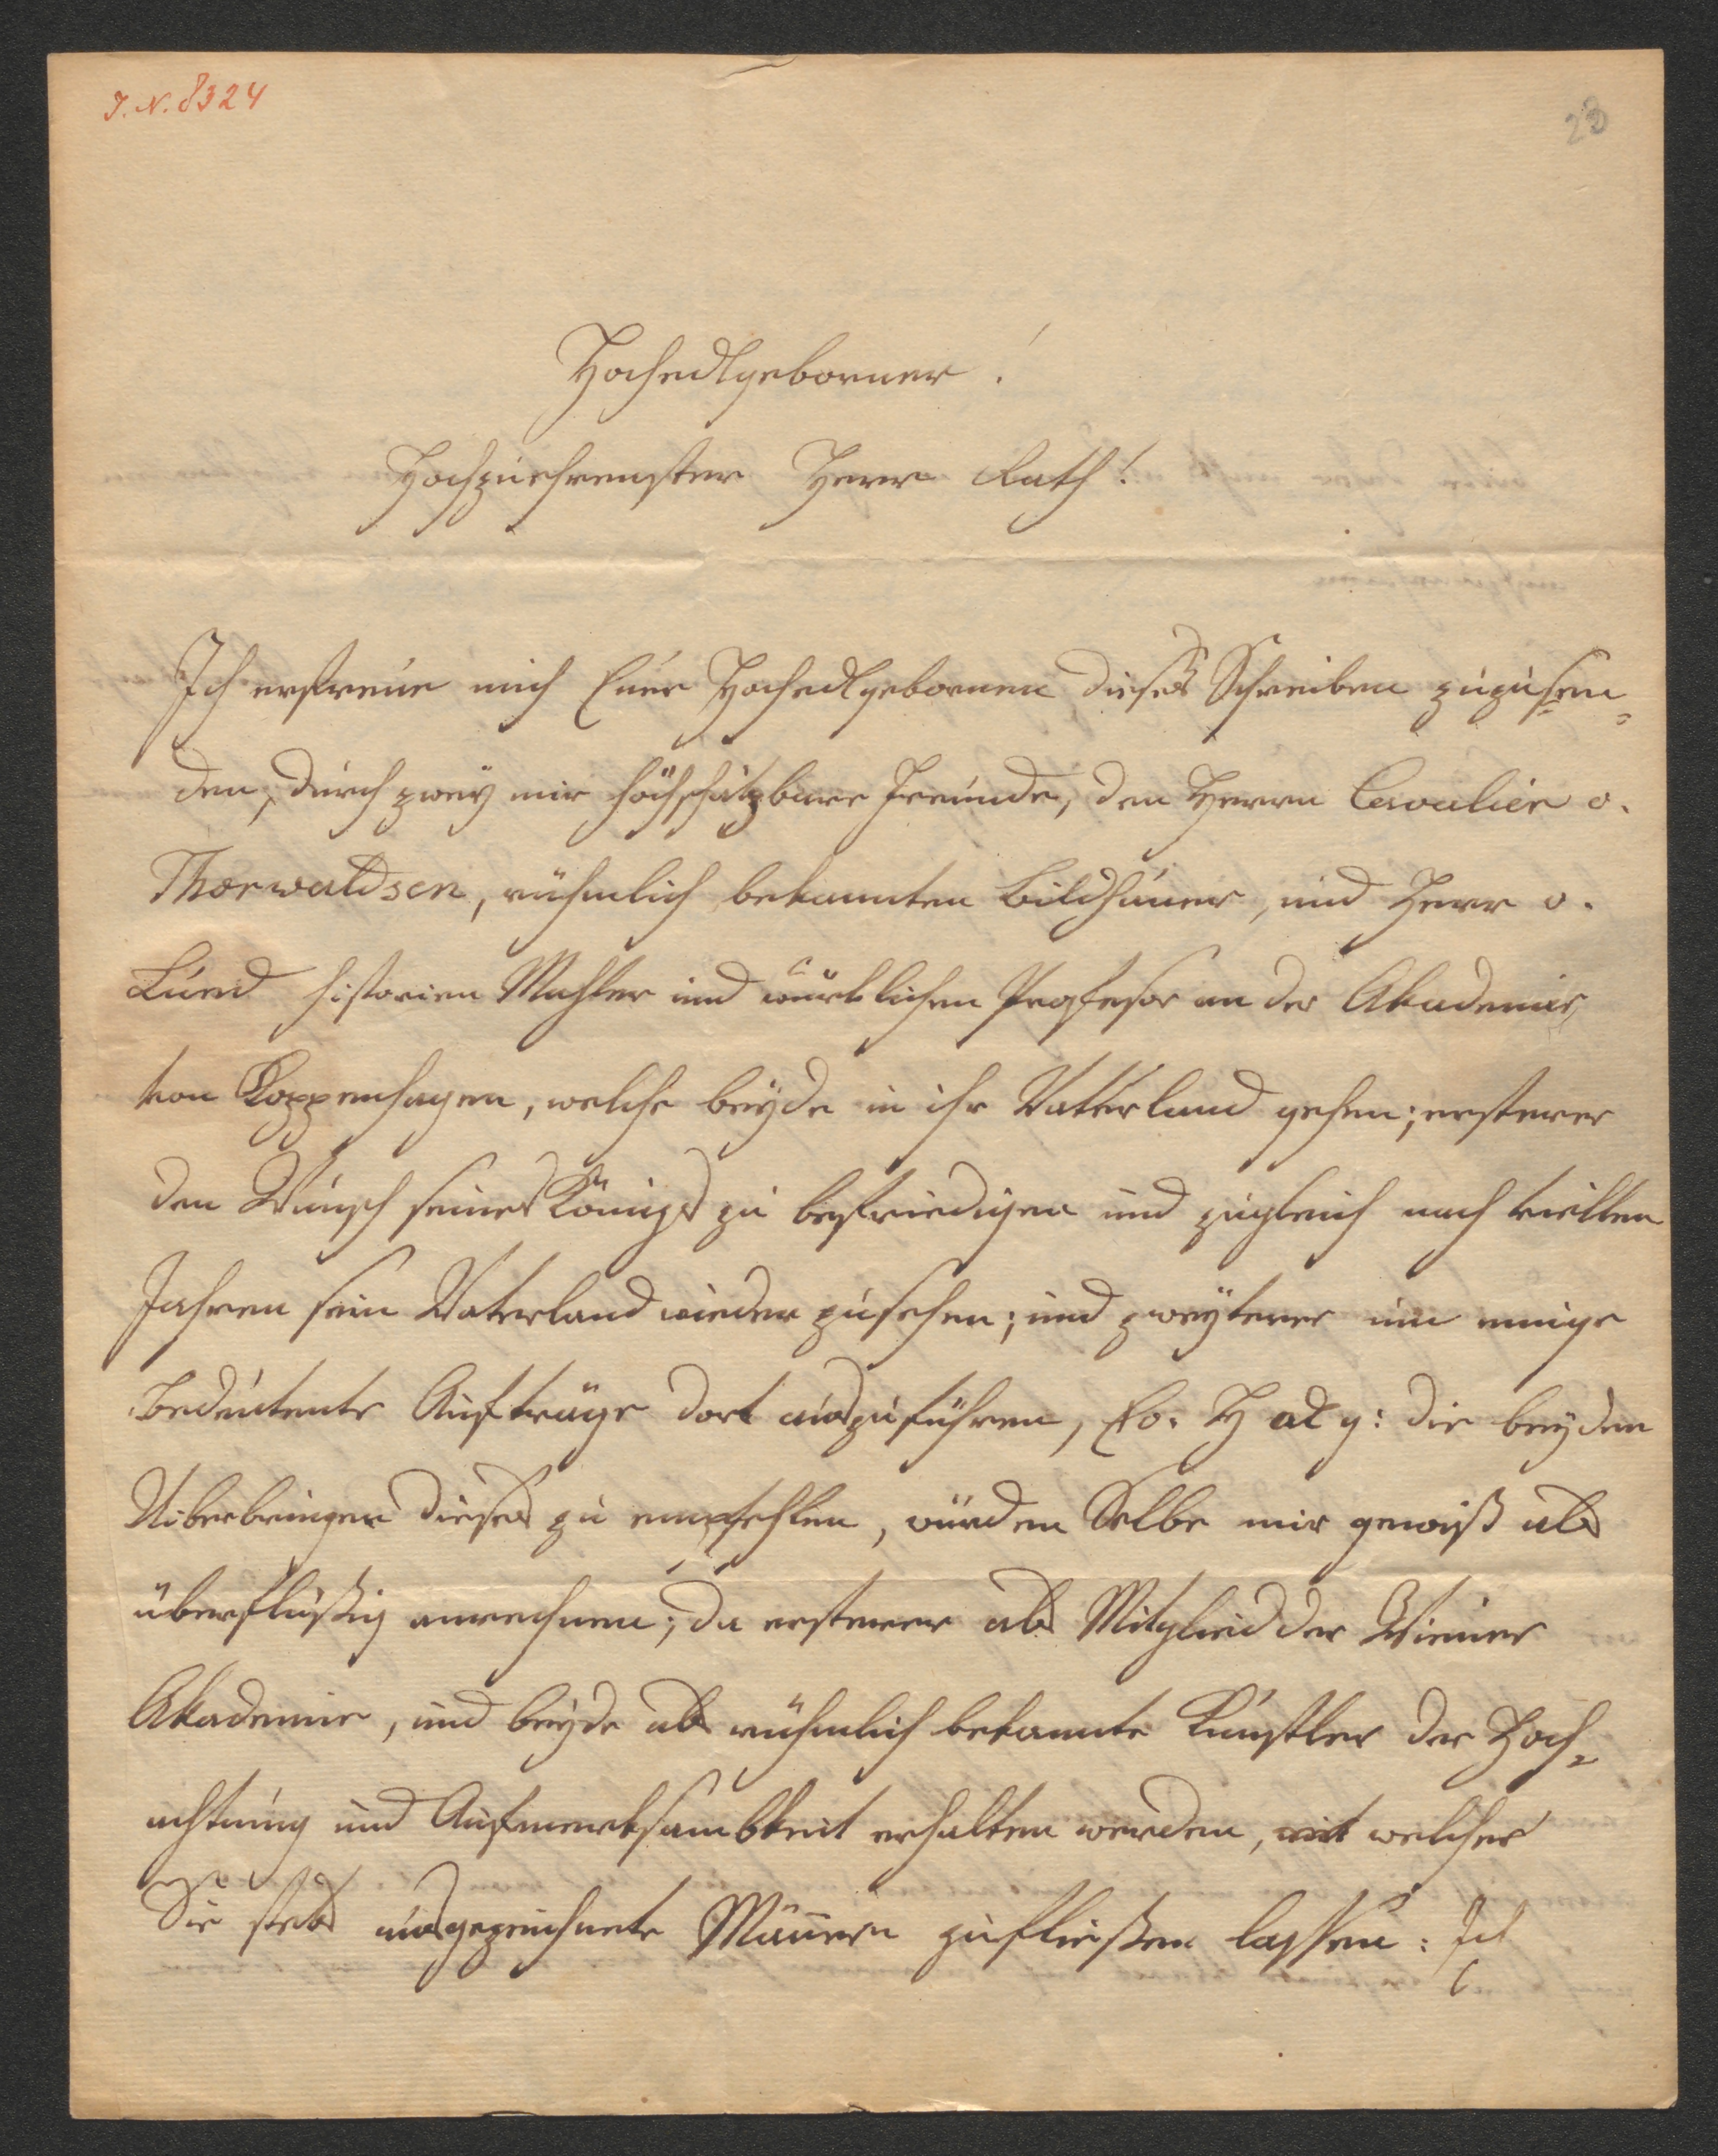 J. N. 8324
23
Hochedlgeborner!
Hochzuehrenster Herr Rath!
Ich erfreue mich Euer Hochedlgebornen dieses Schreiben zuzusen-
den, durch zwey mir höchschätzbare Freunde, den Herrn Cavalier v.
Thorwaldsen, rühmlich bekannten Bildhauer, und Herr v.
Lund Historien Mahler und würklichen Profesor an der Akademie
von Koppenhagen, welche beyde in ihr Vatterland gehen; ersterer
den Wunsch seines Königs zu befriedigen und zugleich nach viellen
Jahren sein Vaterland wieder zusehen; und zweyterer um einige
bedeutente Aufträge dort auszuführen, Eo. H al g: die beyden
Uiberbringer dieses zu empfehlen, würden Selbe mir gewiß als
überflüßig anrechnen; da ersterer als Mitglied der Wiener
Akademie, und beyde als rühmlich bekannte Künstler der Hoch-
achtung und Aufmerksambkeit erhalten werden, mit welcher
Sie stets ausgezeichnete Männern zufließen lassen: Ich